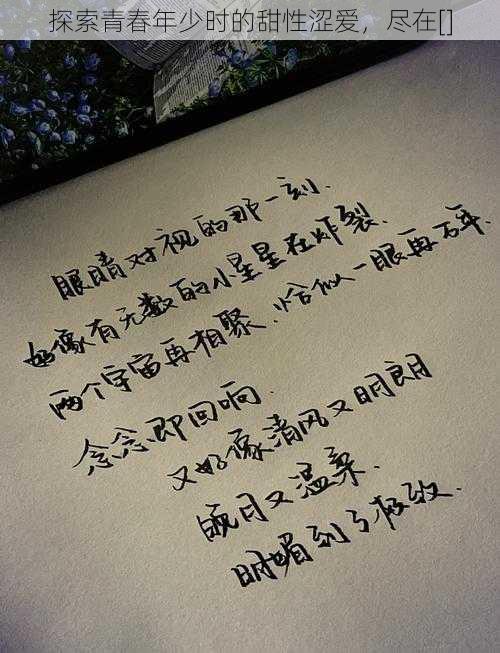 探索青春年少时的甜性涩爱，尽在[]
眼睛对视的那一刻.
好像有无数的小星星在炸裂.
两个宇宙再相聚.恰似一眼再万年.
念念即回响.
又好像清风又明朗
皓月又温柔.
明媚到了极致.